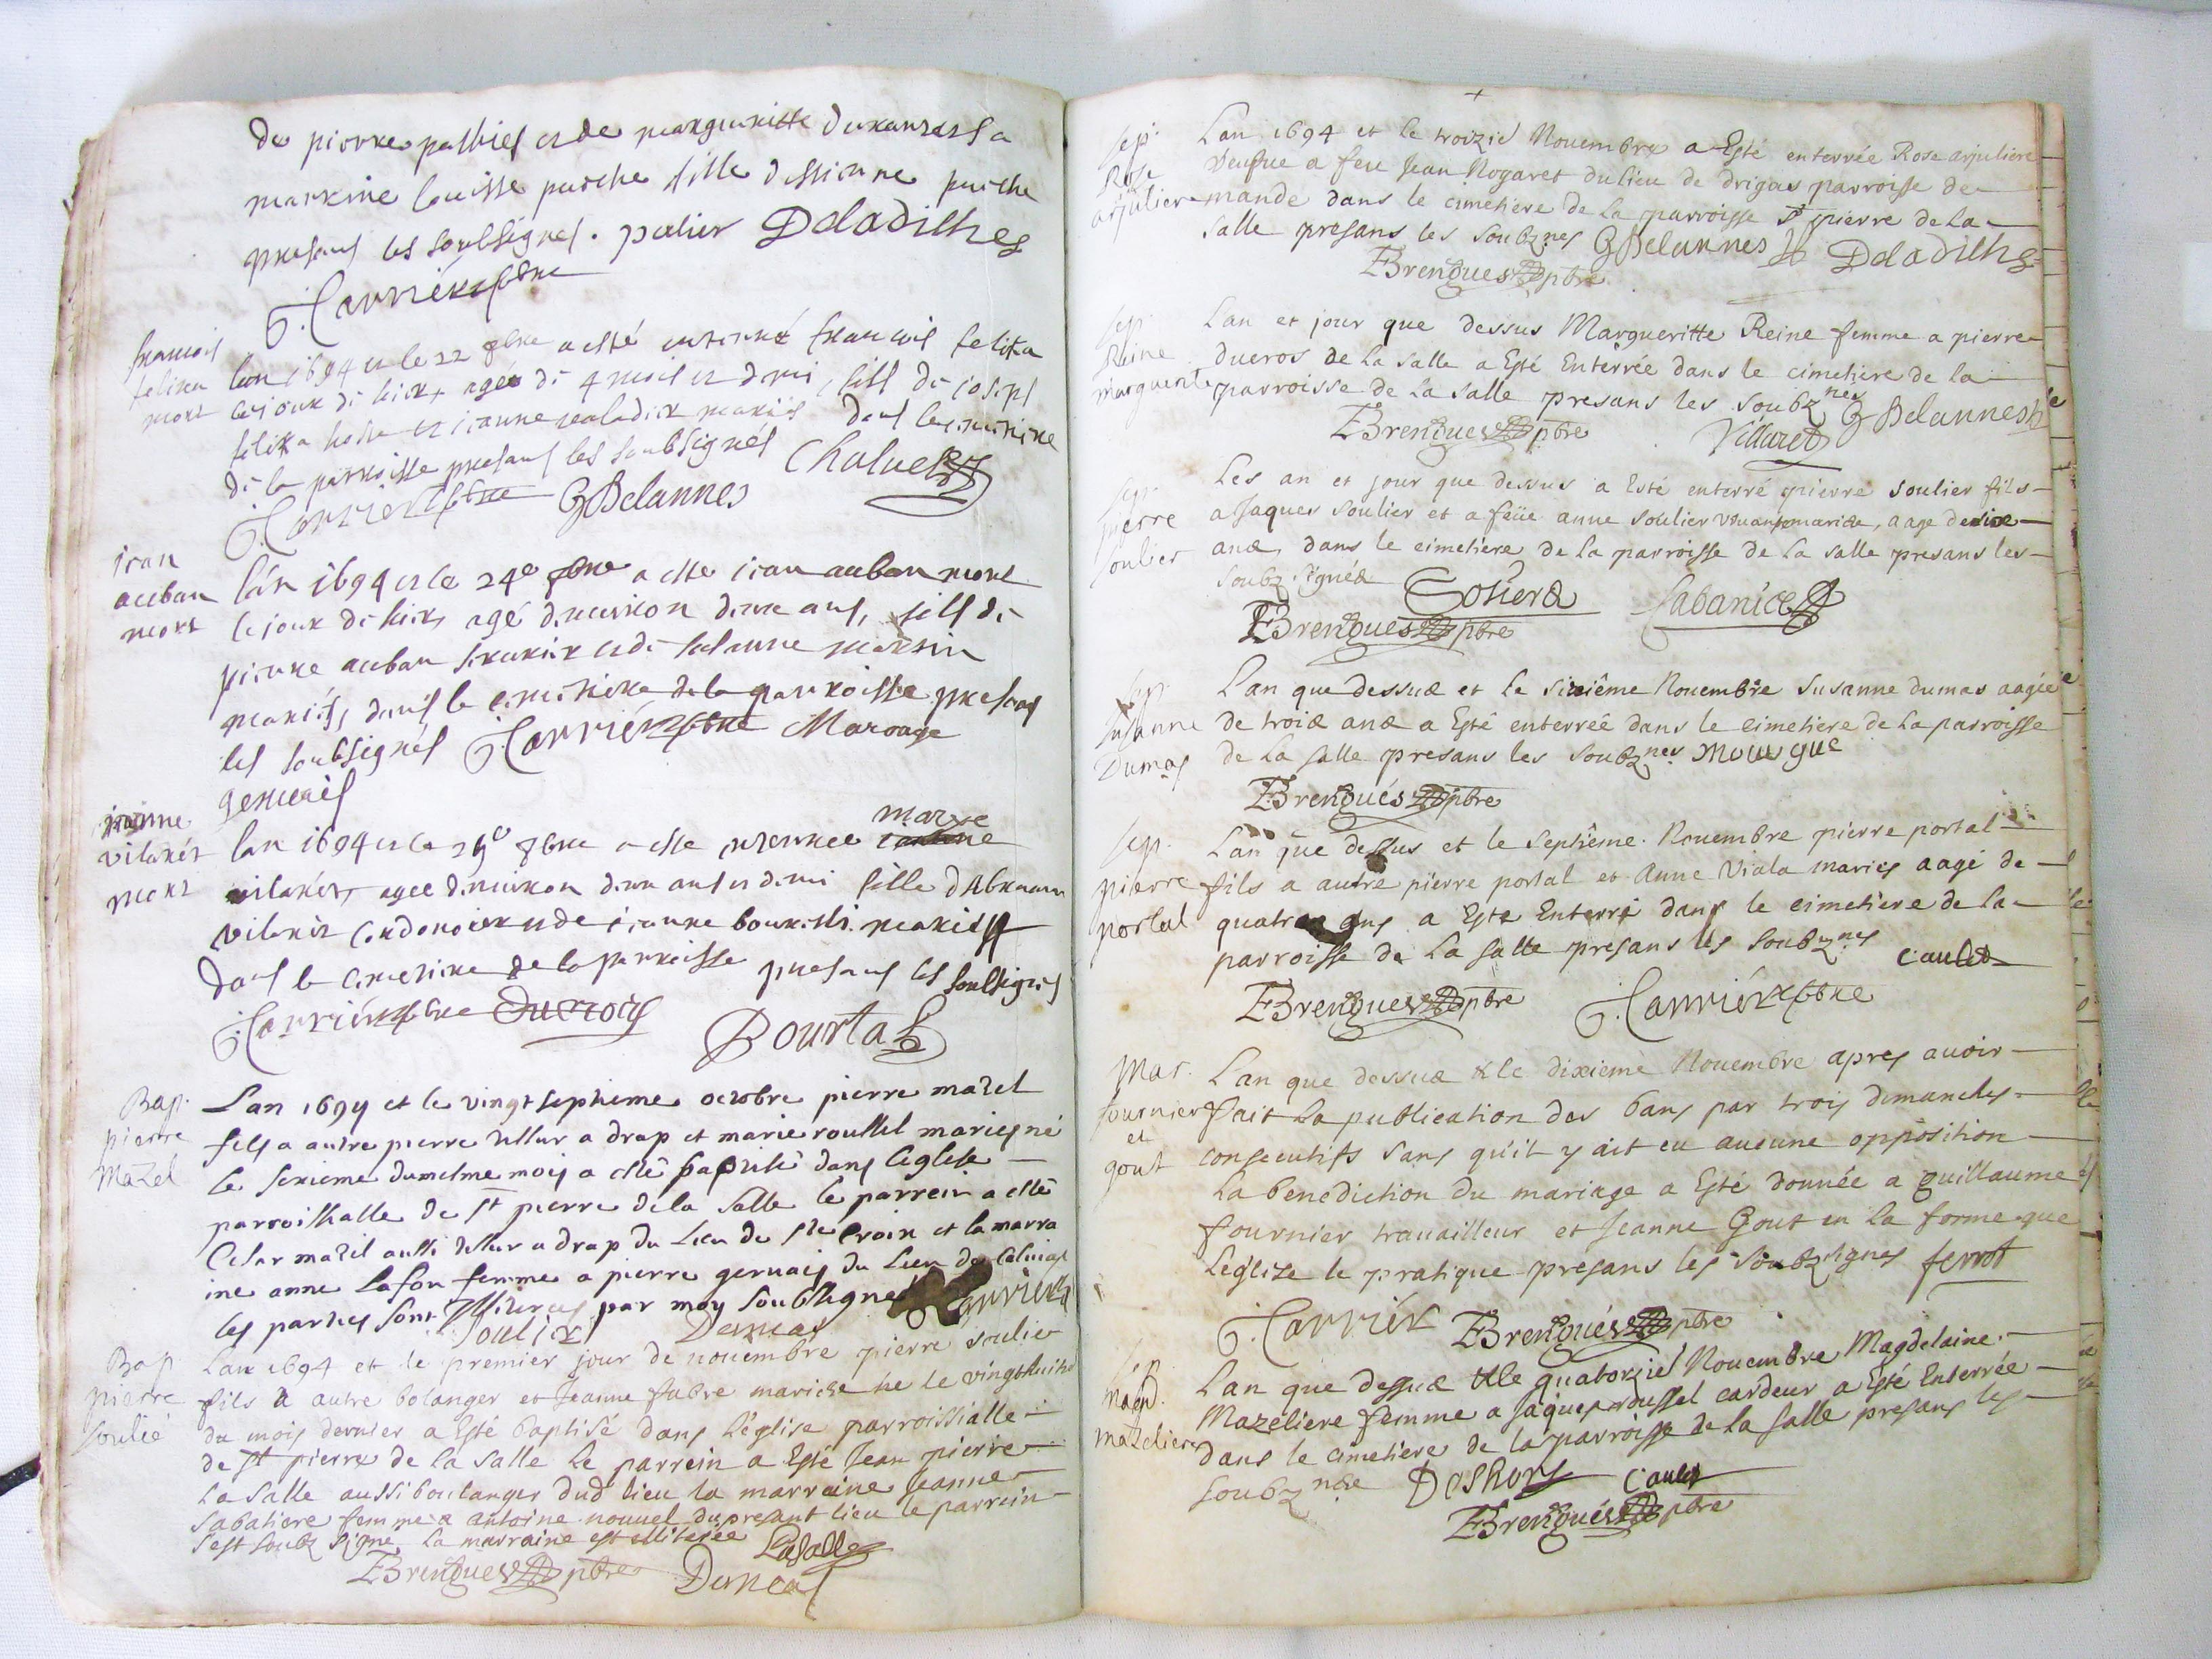 de pierre pathies et de margueritte durante sa
marrine louisse pueche fille destienne pueche
presens les soubsignes . palier Deladilhes
J. Carrière pbre
francois
felix
mort
lan 1694 et le 22 8bre a esté enterré francois
le jour di hier agé de 4 mois et demi, fils de joseph
hoste et jeanne mariés dans le cimitire
de la parroisse presens les soubsignés Chaluet
J. Carrière pbre GDelannes
jean
auban
mort
l'an 1694 et le 24e 8bre a esté jean auban mort
le jour di hier, agé denviron deux ans, fils de
pierre auban et de susanne marsin
mariés, dans le cimitire de la parroisse presens
les soubsignés J. Carrière pbre Marauge
gervais
jeanne
vilaret
mort
lan 1694 et le 8bre a esté enterree marye
vilaret, agee denviron deux ans et demi fille dAbraam
vilaret cordonier et de jeanne mariés
dans le cimetire de la parroisse presens les soubsignés
J. Carrière pbre Ducros
Bourtas
Bap.
pierre
Mazel
Lan 1694 et le vingt septieme octobre pierre mazel
fils a autre pierre tessur a drap et marie roussel mariés né
le seizieme du mesme mois a esté baptisé dans leglise
parroissialle de st pierre de la salle le parrein a esté
Cesar mazel aussi tessur a drap du Lieu de ste Croix et la marra
ine anne Lafon femme a pierre gervais du Lieu de
les parties sont illiterees par moy soubsigné Carrière
Soulier Dumas
Bap
pierre
soulié
Lan 1694 et le premier jour de nouembre pierre soulier
fils a autre bolanger et Jeanne fabre mariese ne le vingthuite
du mois dernier a Esté baptisé dans l'église parroissialle
de st pierre de la salle le parrein a Esté Jean pierre
La salle aussi boulanger dud lieu la marraine Jeanne
Sabatiere femme a antoine nouuel du presant lieu le parrein
s'est soubz signé la marraine est illiterée Lasalle
EBrengues pbre Dumas
Sep.
Rose
arjuliere
L'an 1694 et le troizie Nouembre a Esté enterrée Rose arjuliere
Veufue a feu Jean Nogaret du lieu de drigas parroisse de
mande dans le cimetiere de la parroisse St pierre de la
salle presans les soubznes GDelannes Deladilhes
EBrengues pbre
Sep.
Reine
marguerite
L'an et jour que dessus Margueritte Reine femme a pierre
ducros de la salle a Esté Enterrée dans le cimetiere de la
parroisse de la salle presans les soubznes GDelannes
EBrengues pbre Villaret
Sep.
pierre
soulier
Les an et jour que dessus a Esté enterré pierre soulier fils
a Jaques soulier et a feüe anne soulier viuans mariæ, aage de six
anæ, dans le cimetiere de la parroisse de la salle presans les
soubz signéæ Soliera Cabanice
EBrengues pbre
Sep.
Susanne
Dumas
L'an que dessuæ et le sixiême Nouembre susanne dumas aagée
de troiæ anæ a Esté enterreé dans le cimetiere de la parroisse
de la salle presans les soubznes Mourgue
EBrengués pbre
Sep.
pierre
portal
L'an que dessus et le septiême Nouembre pierre portal
fils a autre pierre portal et Anne Viala mariés aagé de
quatre ans a Esté Enterré dans le cimetiere de la
parroisse de la salle presans les soubznes Caulet
EBrengues pbre J. Carrière pbre
Mar.
fournier
et
gout
L'an que dessuæ & le dixiême Nouembre apres auoir
fait la publication des bans par trois dimanches
consecutifs sans qu'il y ait eu aucune opposition
La benediction du mariage a Esté donnée a guillaume
fournier trauailleur et Jeanne Gout en la forme que
L'église le pratique presans les soubzsignes ferrot
J. Carrière EBrengués pbre
Sep
Magd.
mazeliere
L'an que dessuæ & le quatorzie Nouembre Magdelaine
Mazeliere femme a Jaques roussel cardeur a Esté Enterrée
dans le cimetiere de la parroisse de la salle presans les
soubznæ Deshors Caulet
EBrengués pbre